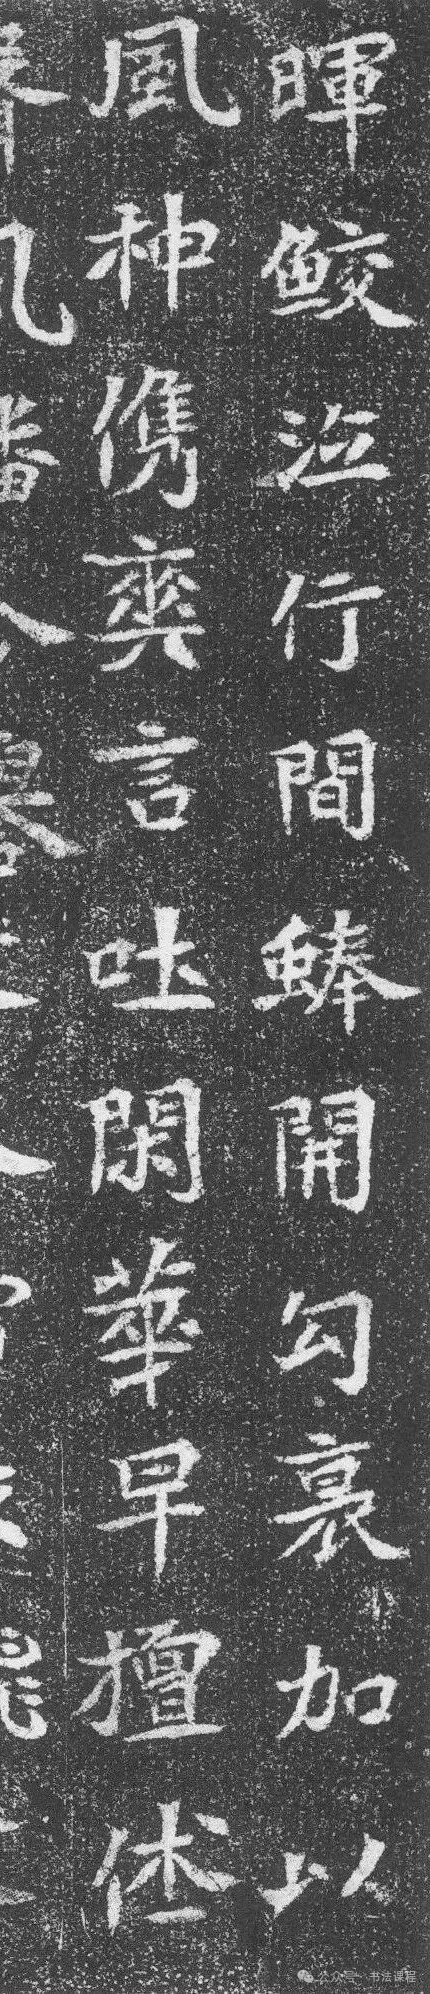 暉鮫泣行間蜯開勾裏加以
風神儁爽言吐閑華早擅休
公众号 · 书法课程